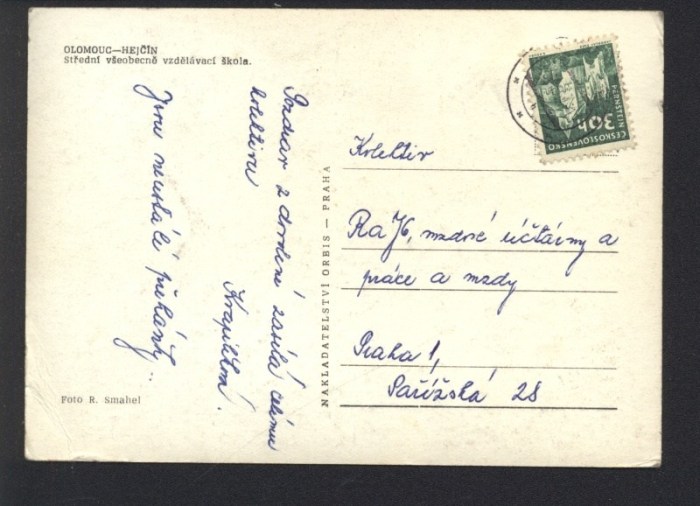 OLOMOUC—HEJČÍN
Střední všeobecně vzdělávací škola.
Pozdrav z dovolené zasílá celému
kolektivu
Krapilkou.
Jsou neustálé přeháňky..
Foto R. Smahel
NAKLADATELSTVÍ ORBIS — PRAHA
ČESKOSLOVENSKO
30h
PERNŠTEJN
Kolektiv
RaJ6, mzdové účtárny a
práce a mzdy
Praha 1,
Pařížská 28